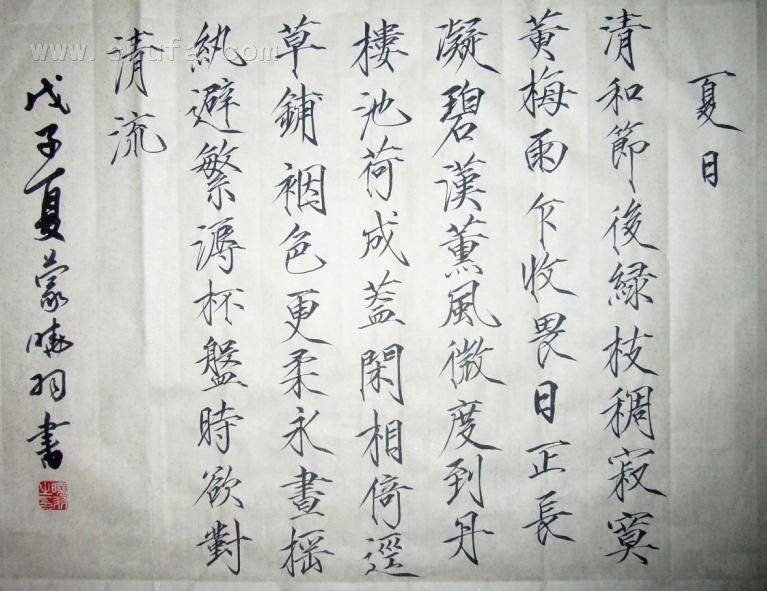 夏日
清和節後緑枝稠寂寞
黃梅雨乍收畏日正長
凝碧漢薰風微度到丹
樓池荷成蓋閑相倚逕
草鋪裀色更柔永晝揺
紈避繁溽杯盤時欲對
清流
戊子夏蒙曉羽書